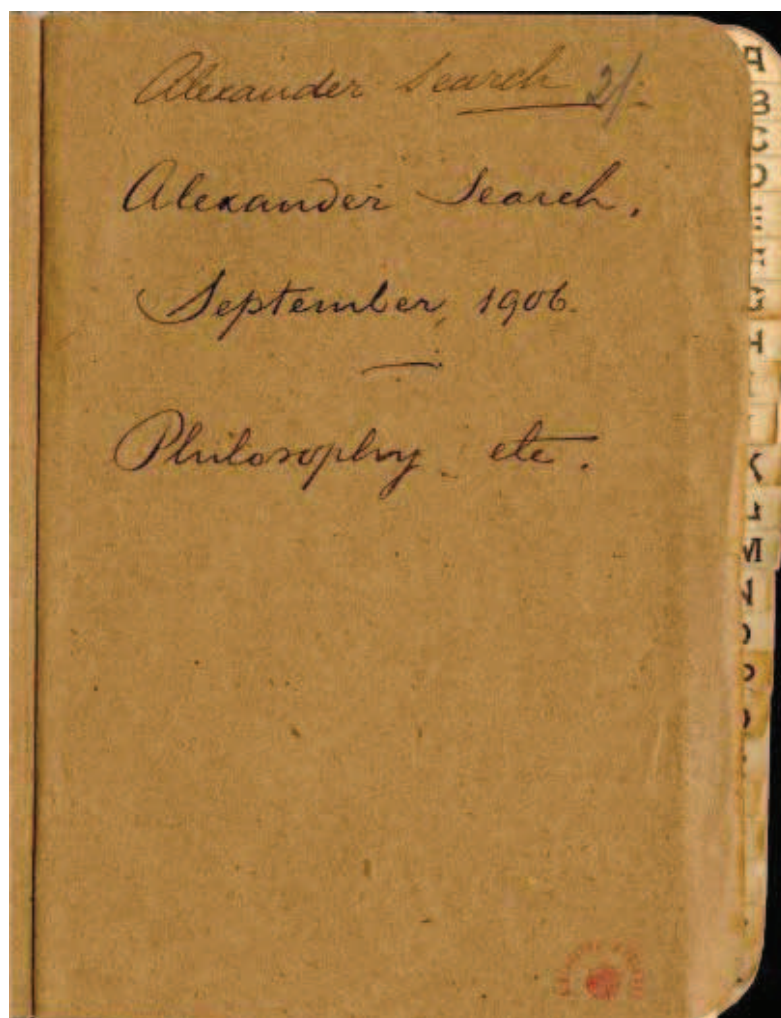 Alexander Search 2/-
Alexander Search.
September, 1906.
Philosophy etc.
A
B
C
D
E
F
G
H
K
L
M
N
O
P
Q